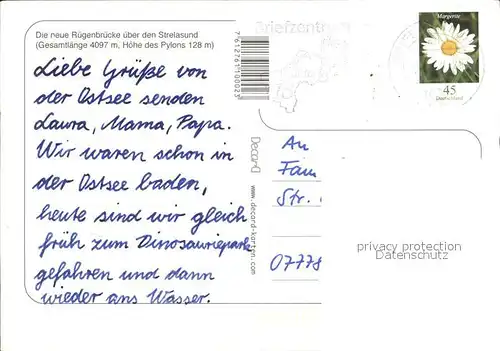 Die neue Rügenbrücke über den Strelasund
(Gesamtlänge 4097 m, Höhe des Pylons 128 m)
Liebe Grüße von
der Ostsee senden
Laura, Mama, Papa.
Wir waren schon in
der Ostsee baden,
heute sind wir gleich
früh zum Dinosauriepark
gefahren und dann
wieder ans Wasser.
7612761100023
DecarD
www.decard-karten.com
Briefzentrum
Margerite
45
Deutschland
An
Fam
Str.
07778
privacy protection
Datenschutz